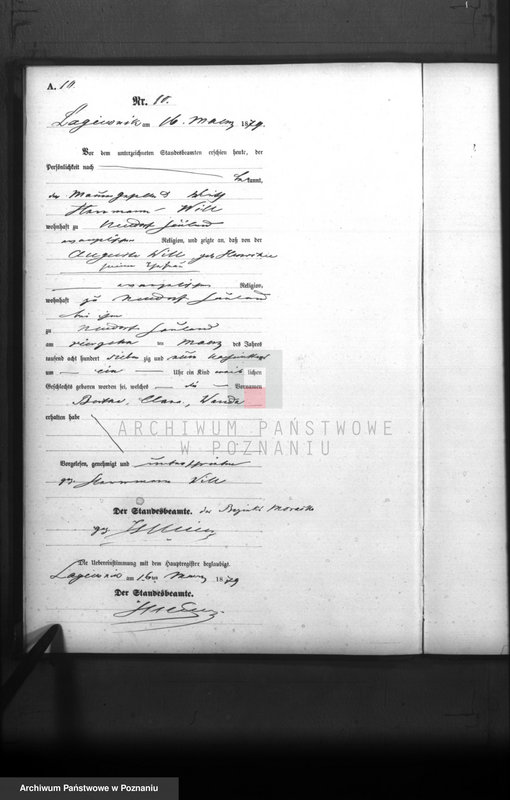 A. 10.
Nr. 10.
Lagiewnik am 16. Maerz 1879.
Vor dem unterzeichneten Standesbeamten erschien heute, der
Persönlichkeit nach
kannt,
der
Herrmann Will
wohnhaft zu Neudorf Hauland
evangelischer Religion, und zeigte an, daß von der
Auguste Will geb.
seiner Ehefrau
evangelischer Religion,
wohnhaft zu Neudorf Hauland
bei ihm
zu Neudorf Hauland
am vierzehn ten Maerz des Jahres
tausend acht hundert sieben zig und neun Nachmittags
um ein Uhr ein Kind weib lichen
Geschlechts geboren worden sei, welches die Vornamen
Clara, Wanda
erhalten habe
Vorgelesen, genehmigt und unterschrieben
gez. Herrmann Will
Der Standesbeamte. des Bezirks
gez.
Die Uebereinstimmung mit dem Hauptregister beglaubigt.
Lagiewnik am 16ten Maerz 1879
Der Standesbeamte.
ARCHIWUM PAŃSTWOWE
W POZNANIU
Archiwum Państwowe w Poznaniu